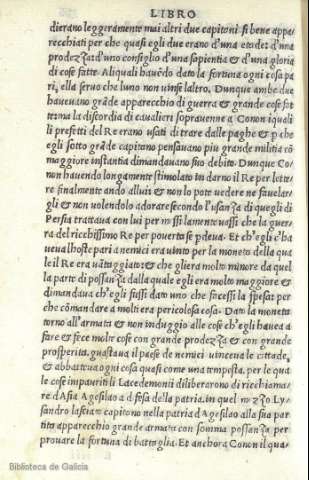 LIBRO
dierano leggeramente mai altri due capitani si bene appa-
recchiati per che quasi egli due erano d'una etade: d'una
prodezza: d'uno consiglio d'una sapientia & d'una gloria
di cose fatte. Aliquali havēdo dato la fortuna ogni cosa pa
ri, ella servo che luno non vinse laltro. Dunque ambe due
havevano grāde apparecchio di guerra & grande cose fat
te: ma la discordia di cavalieri sopravenne a Conon iquali
li prefetti del Re erano usati di trare dalle paghe & p che
egli sotto grāde capitano pensavano piu grande militia cō
maggiore instantia dimandavano suo debito. Dunque Co
non havendo longamente stimolato in darno il Re per lette
re finalmente ando allui: & non lo pote vedere ne favelar-
gli & non volendolo adorare secondo l'usanza di quegli di
Persia trattava con lui per messi lamentevassi che la guer
ra del ricchissimo Re per poverta se pdeva. Et ch'egli c'ha
veva lhoste pari a nemici era vinto per la moneta della qua
le il Re era vātaggiato: & che gliera molto minore da quel
la parte di possanza dalla quale egli era molto maggiore &
dimandava ch'egli fussi dato uno che facessi la spesa: per
che cōmandare a molti era pericolosa cosa. Dato la moneta
torno all'armata & non induggio alle cose ch'egli havea a
fare & fece molte cose con grande prodezza & con grande
prosperita, guastava il paese de nemici vinceva le cittade,
& abbattua ogni cosa quasi come una tempesta, per le qua
le cose impauriti li Lacedemonii diliberarono di ricchiama-
re d'Asia Agesilao a difesa della patria, in quel mezzo Ly
sandro lasciato capitano nella patria d'Agesilao alla sua par
tita apparecchio grande armata con somma possanza per
provare la fortuna di battaglia. Et anchora Conon il qua-
Biblioteca de Galicia